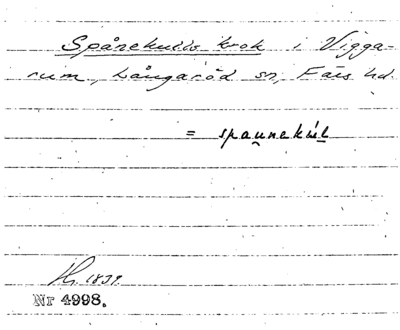 Spånekulls krok i Vigga-
rum, Långaröd sn, Färs hd.
= spaunekúl
1839
Nr 4998.